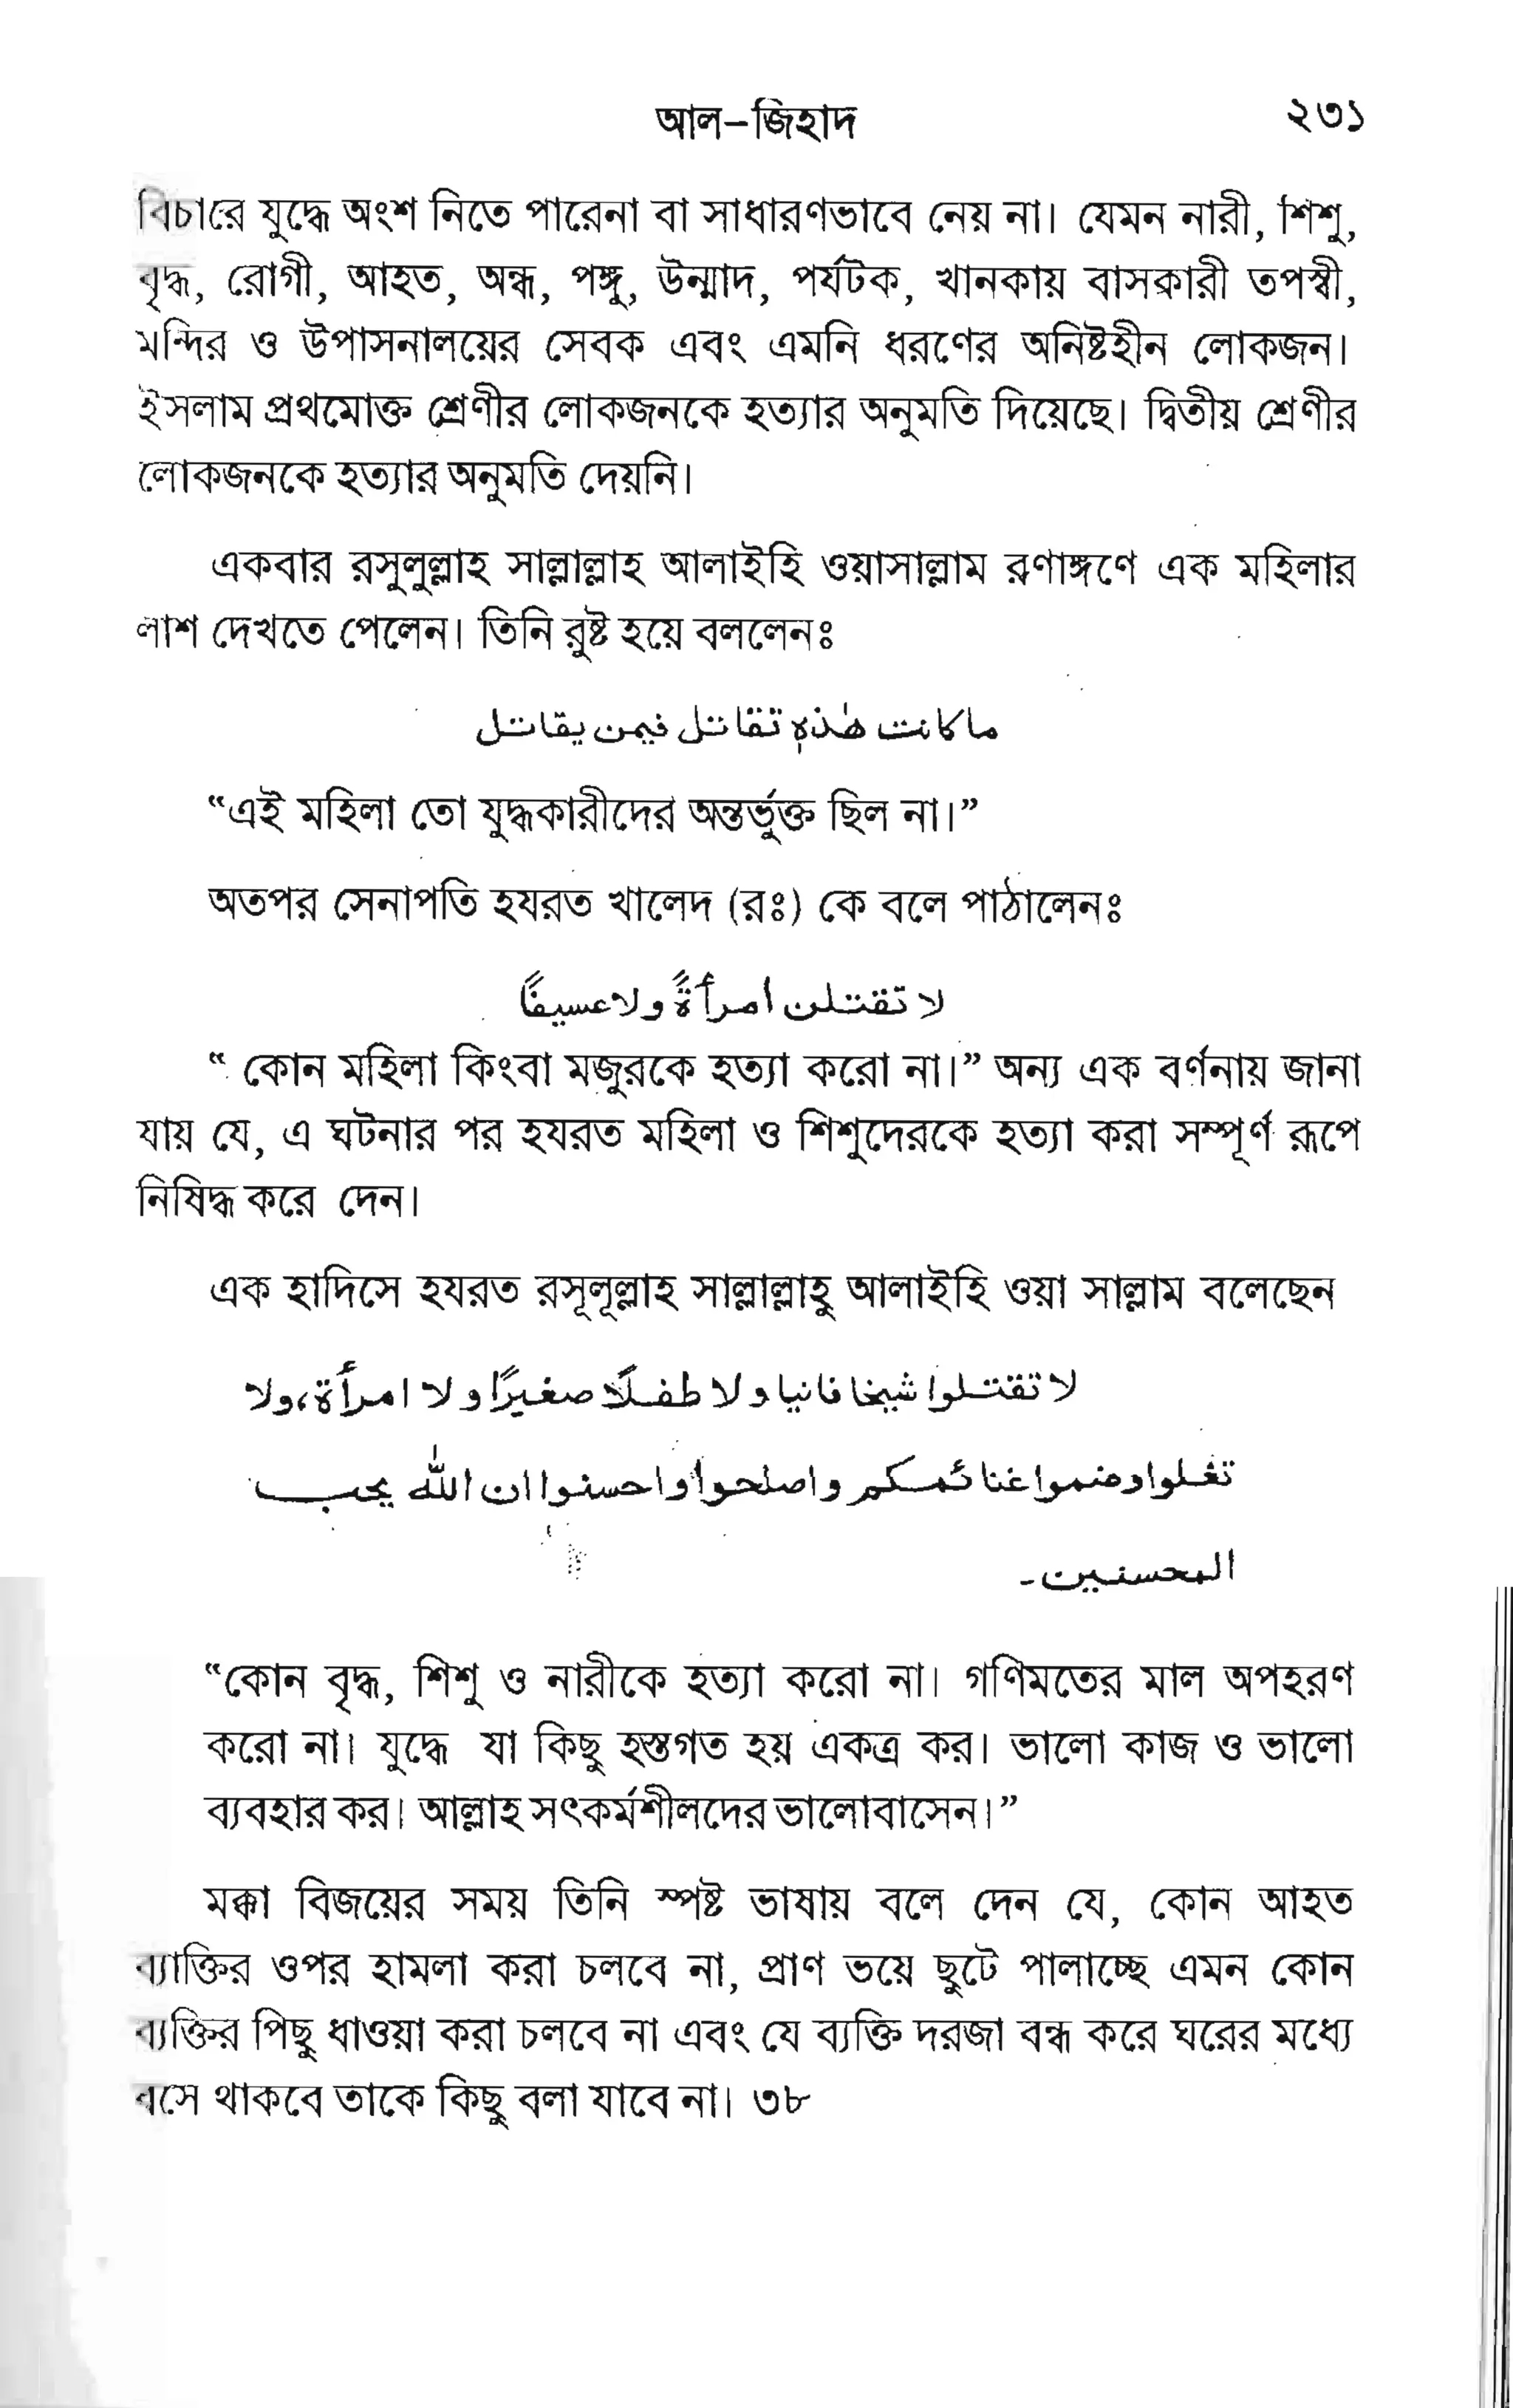 আল–জিহাদ ২৩১
বিচারে যুদ্ধে অংশ নিতে পারেনা বা সাধারণভাবে নেয় না। যেমন নারী, শিশু,
বৃদ্ধ, রোগী, আহত, অন্ধ, পঙ্গু, উন্মাদ, পর্যটক, খানকায় বাসকারী তপস্বী,
মন্দির ও উপাসনালয়ের সেবক এবং এমনি ধরণের অনিষ্টহীন লোকজন।
ইসলাম প্রথমোক্ত শ্রেণীর লোকজনকে হত্যার অনুমতি দিয়েছে। দ্বিতীয় শ্রেণীর
লোকজনকে হত্যার অনুমতি দেয়নি।
একবার রসুলুল্লাহ সাল্লাল্লাহ আলাইহি ওয়াসাল্লাম রণাঙ্গণে এক মহিলার
লাশ দেখতে পেলেন। তিনি রুষ্ট হয়ে বললেনঃ
ماكانت هٰذهٖ تقاتل فيمن يقاتل
“এই মহিলা তো যুদ্ধকারীদের অন্তর্ভুক্ত ছিল না।”
অতপর সেনাপতি হযরত খালেদ (রঃ) কে বলে পাঠালেনঃ
لا تقتلن امرأةً ولاعسيفًا
“ কোন মহিলা কিংবা মজুরকে হত্যা করো না।” অন্য এক বর্ণনায় জানা
যায় যে, এ ঘটনার পর হযরত মহিলা ও শিশুদেরকে হত্যা করা সম্পূর্ণ রূপে
নিষিদ্ধ করে দেন।
এক হাদিসে হযরত রসূলূল্লাহ সাল্লাল্লাহু আলাইহি ওয়া সাল্লাম বলেছেন
لا تقتلوا شيخا فانيا ولا طفلًا صغيرًا ولا امرأة، ولا
تغلوا وضموا غنائمكم واصلحوا واحسنوا ان الله يحب
المحسنين۔
“কোন বৃদ্ধ, শিশু ও নারীকে হত্যা করো না। গণিমতের মাল অপহরণ
করো না। যুদ্ধে যা কিছু হস্তগত হয় একত্র কর। ভালো কাজ ও ভালো
ব্যবহার কর। আল্লাহ সৎকর্মশীলদের ভালোবাসেন।”
মক্কা বিজয়ের সময় তিনি স্পষ্ট ভাষায় বলে দেন যে, কোন আহত
ব্যাক্তির ওপর হামলা করা চলবে না, প্রাণ ভয়ে ছুটে পালাচ্ছে এমন কোন
ব্যক্তির পিছু ধাওয়া করা চলবে না এবং যে ব্যক্তি দরজা বন্ধ করে ঘরের মধ্যে
বসে থাকবে তাকে কিছু বলা যাবে না। ৩৮